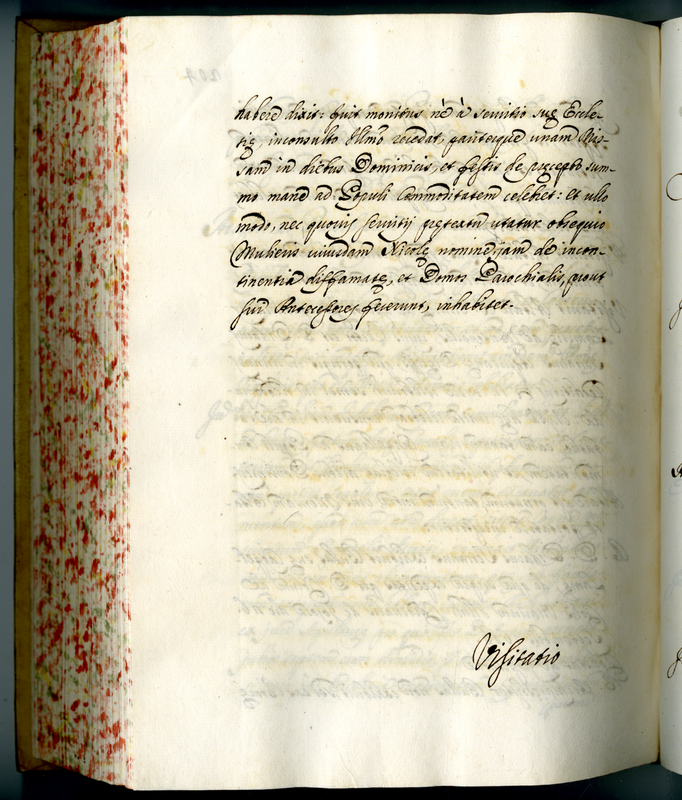 habere dixit: fuit monitus nè à servitio suę Eccle-
się, inconsulto Illmo recedat, pariterque unam Mis-
sam in diebus Dominicis, et festis de pręcepto sum-
mo mane ad Populi commoditatem celebret: et ullo
modo, nec quovis servitij pretextu utatur obsequio
Mulieris cuiusdam Nicolę nomine, jam de incon-
tinentia diffamatę, et Domos Parochialis, prout
sui Antecessores fecerunt, inhabitet.
Visitatio